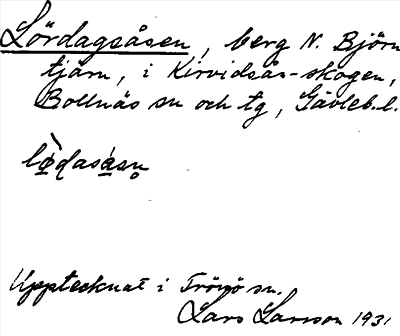 Lördagsåsen, berg N. Björn
tjärn, i Kirvidsås-skogen,
Bollnäs sn och tg, Gävleb. l.
Upptecknat i Trönö sn.
Lars Larsson 1931